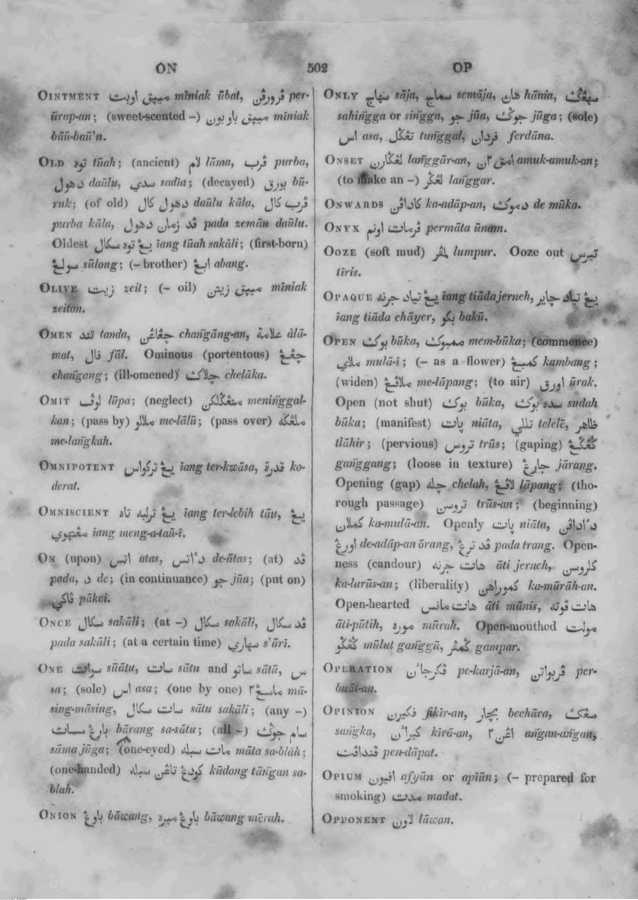 ON
502
OP
OINTMENT مپيق اوبت mīniak ūbat, ڤرورڤن per-
ūrap-an; (sweet-scented -) مپيق باو بون mīniak
bāū-baū'n.
OLD توه tūah; (ancient) لام lāma, ڤرب purba,
دهول daūlu, سدي sadīa; (decayed) بورق bū-
ruk; (of old) دهول كال daūlu kāla, ڤرب كال
purba kāla, قد زمان دهول pada zemān daūlu.
Oldest يڠ توه سكال iang tūah sakāli; (first-born)
سولڠ sūlong; (- brother) ابڠ abang.
OLIVE زيت zeit; (- oil) مپيق زيتن mīniak
zeiton.
OMEN تند tanda, چڠاڠن changāng-an, علامة ālā-
mat, فال fāl. Ominous (portentous) چڠڠ
changang; (ill-omened) چلاك chelāka.
OMIT لوڤ lūpa; (neglect) منڠݢلكن meninggal-
kan; (pass by) ملالو me-lālū; (pass over) ملڠكه
me-langkah.
OMNIPOTENT يڠ تركواس iang ter-kwāsa, قدرة ko-
derat.
OMNISCIENT يڠ ترلبه تاه iang ter-lebih tāu, يڠ
مڠتهوي iang meng-a-taū-ī.
ON (upon) اتس atas, داتس de-ātas; (at) قد
pada, د de; (in continuance) جو jūa; (put on)
ڤاكي pākei.
ONCE سكال sakāli; (at -) سكال sakāli, قد سكال
pada sakāli; (at a certain time) سهاري s'āri.
ONE سواتت sūātu, سات sātu and ساتو sātū, س
sa; (sole) اس asa; (one by one) ماسڠ٢ mā-
sing-māsing, سات سكال sātu sakāli; (any -)
بارڠ سسات bārang sa-sātu; (all -) سام جوݢ
sāma jūga; (one-eyed) مات سبله māta sa-blah;
(one-handed) كودڠ تاڠن سبله kūdong tāngan sa-
blah.
ONION باوڠ bāwang, باوڠ ميره bāwang mērah.
ONLY سهاج sāja, سماج semāja, هان hānia, سهڠݢ
sahingga or singga, جو jūa, جوݢ jūga; (sole)
اس asa, تڠݢل tunggal, فردان ferdāna.
ONSET لڠݢارن langgār-an, امق٢ن amuk-amuk-an;
(to make an -) لڠݢر langgar.
ONWARDS كاداڤن ka-adāp-an, دموك de mūka.
ONYX ڤرمات اونم permāta ūnam.
OOZE (soft mud) لمڤر lumpur. Ooze out تيرس
tīris.
OPAQUE يڠ تياد جرنه iang tiāda jerneh, يڠ تياد چاير
iang tiāda chāyer, بكو bakū.
OPEN بوك būka, ممبوك mem-būka; (commence)
ملاي mulā-i; (- as a flower) كمبڠ kambang;
(widen) ملاڤڠ me-lāpang; (to air) اورق ūrak.
Open (not shut) بوك būka, سده بوك sudah
būka; (manifest) پات niāta, تللي telēlē, ظاهر
tlāhir; (pervious) تروس trūs; (gaping) ݢڠݢڠ
ganggang; (loose in texture) جارڠ jārang.
Opening (gap) چله chelah, لاڤڠ lāpang; (tho-
rough passage) تروسن trūs-an; (beginning)
كملاان ka-mulā-an. Openly پات niāta, داداڤن
اورڠ de-adāp-an ōrang, قد ترڠ pada trang. Open-
ness (candour) هات جرنه āti jerneh, كلروسن
ka-lurūs-an; (liberality) كموراهن ka-mūrāh-an.
Open-hearted هات مانس āti mānis, هات ڤوته
āti-pūtih, موره mūrah. Open-mouthed مولت
ݢڠݢو mūlut ganggū, ݢمڤر gampar.
OPERATION ڤكرجاان pe-karjā-an, ڤربواتن per-
buāt-an.
OPINION فكيرن fikīr-an, بچار bechāra, سڠك
sangka, كيراان kirā-an, اڠن٢ angan-angan,
ڤنداڤت pen-dāpat.
OPIUM افيون afyūn or apiūn; (- prepared for
smoking) مدت madat.
OPPONENT لاون lāwan.